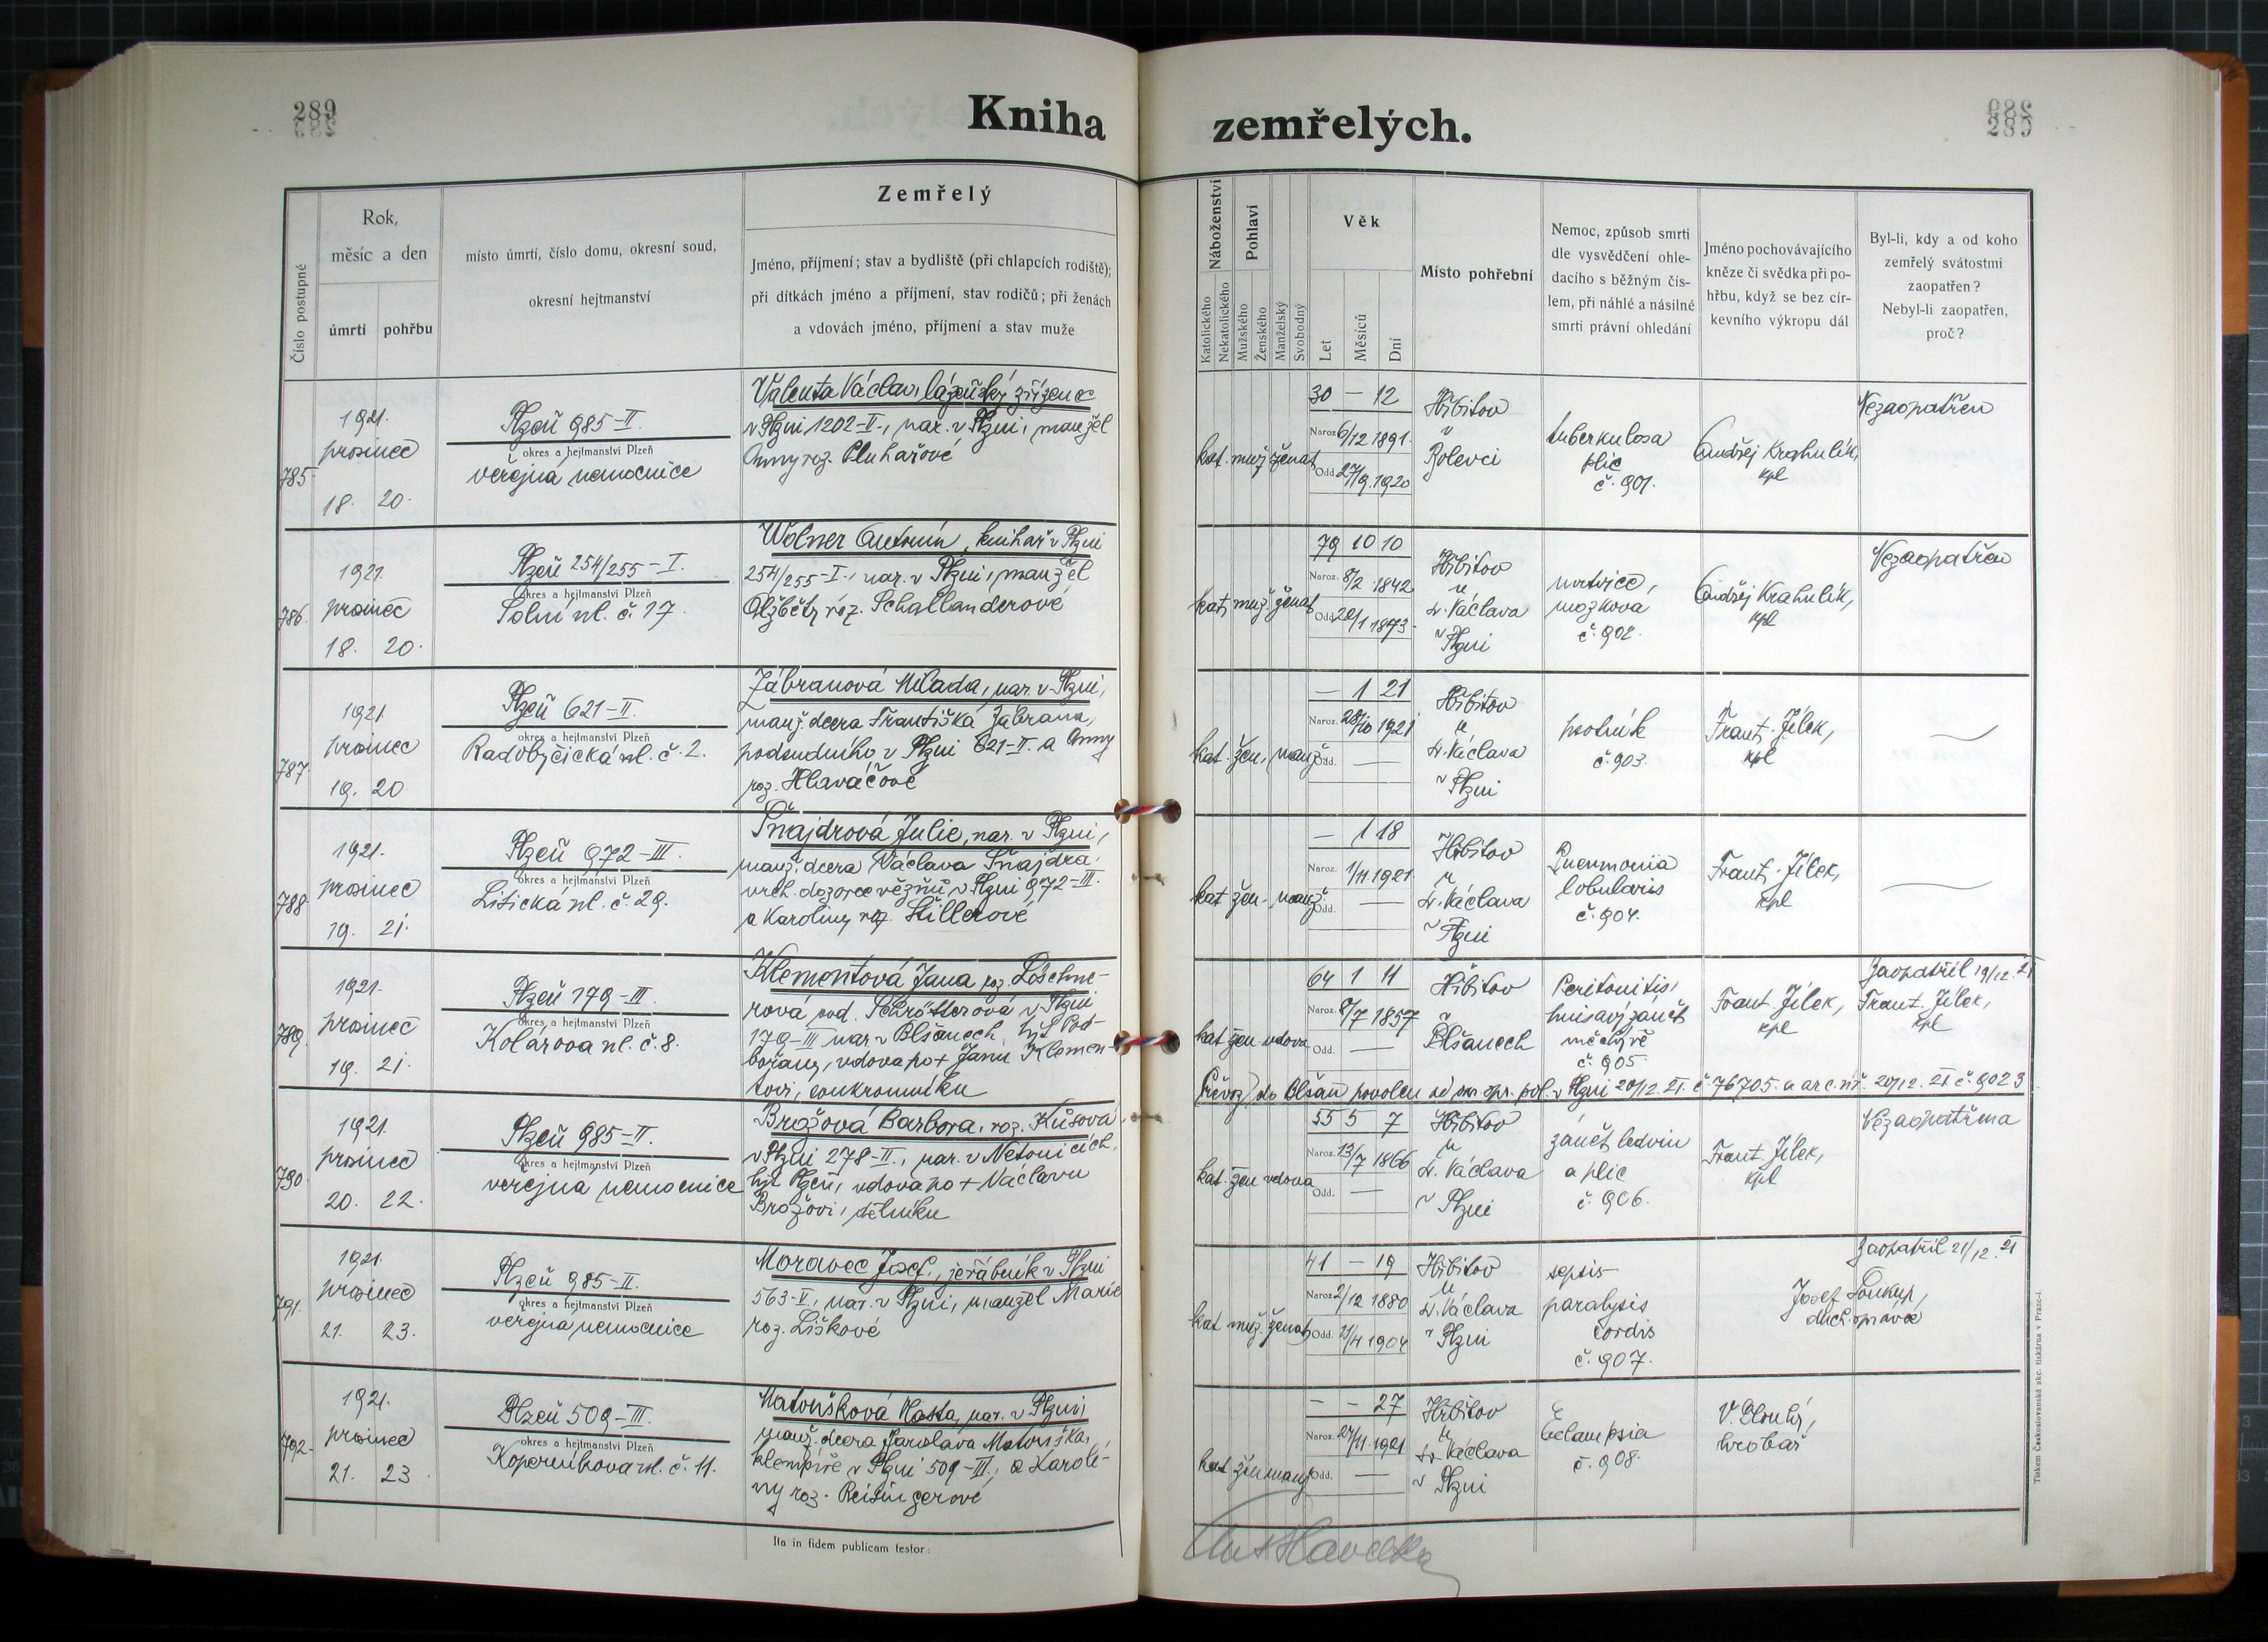 289
Kniha zemřelých.
289
Číslo postupné
Rok,
měsíc a den
úmrtí
pohřbu
místo úmrtí, číslo domu, okresní soud,
okresní hejtmanství
Zemřelý
Jméno, příjmení; stav a bydliště (při chlapcích rodiště);
při dítkách jméno a příjmení, stav rodičů; při ženách
a vdovách jméno, příjmení a stav muže
Náboženství
Katolického
Nekatolického
Pohlaví
Mužského
Ženského
Manželský
Svobodný
Věk
Let
Měsíců
Dní
Místo pohřební
Nemoc, způsob smrti
dle vysvědčení ohle-
dacího s běžným čís-
lem, při náhlé a násilné
smrti právní ohledání
Jméno pochovávajícího
kněze či svědka při po-
hřbu, když se bez cír-
kevního výkropu dál
Byl-li, kdy a od koho
zemřelý svátostmi
zaopatřen?
Nebyl-li zaopatřen,
proč?
785
1921.
prosinec
18. 20.
Plzeň 985-II.
okres a hejtmanství Plzeň
veřejná nemocnice
Valenta Václav, lázeňský zřízenec
v Plzni 1202-II., nar. v Plzni, manžel
Anny roz. Pluhařové
kat. muž. ženat
30 — 12
Naroz. 6/12 1891.
Odd. 27/9. 1920
Hřbitov
v
Bolevci
tuberkulosa
plic
č. 901.
Ondřej Krahulík,
kpl
Nezaopatřen
786.
1921.
prosinec
18. 20.
Plzeň 254/255-I.
okres a hejtmanství Plzeň
Solní ul. č. 17.
Wolner Antonín, knihař v Plzni
254/255-I., nar. v Plzni, manžel
Alžběty roz. Schallanderové
kat. muž. ženat
79 10 10
Naroz. 8/2 1842
Odd. 20/1 1873.
Hřbitov
u
sv. Václava
v Plzni
mrtvice,
mozková
č. 902.
Ondřej Krahulík,
kpl
Nezaopatřen
787.
1921
prosinec
19. 20
Plzeň 621-II.
okres a hejtmanství Plzeň
Radobyčická ul. č. 2.
Zábranová Milada, nar. v Plzni,
manž. dcera Františka Zábrana,
podsudního v Plzni 621-II. a Anny
roz. Hlaváčové
kat. žen. manž.
— 1 21
Naroz. 28/10 1921
Odd. —
Hřbitov
u
sv. Václava
v Plzni
psotník
č. 903.
Frant. Jílek,
kpl
788.
1921.
prosinec
19. 21.
Plzeň 972-III.
okres a hejtmanství Plzeň
Litická ul. č. 29.
Šnajdrová Julie, nar. v Plzni,
manž. dcera Václava Šnajdra,
vrch. dozorce vězňů v Plzni 972-III.
a Karoliny roz. Hillerové
kat. žen. manž.
— 1 18
Naroz. 1/11 1921.
Odd. —
Hřbitov
u
sv. Václava
v Plzni
Pneumonia
lobularis
č. 904.
Frant. Jílek,
kpl
789.
1921.
prosinec
19. 21.
Plzeň 179-III.
okres a hejtmanství Plzeň
Kolárova ul. č. 8.
Klementová Jana roz. Löschne-
rová vod. Schrötterová v Plzni
179-III nar. v Blšanech, hjt. Pod-
bořany, vdova po + Janu Klemen-
tovi, soukromníku
kat. žen. vdova
64 1 11
Naroz. 8/7 1857
Odd. —
Hřbitov
v
Blšanech
Peritonitis,
hnisavý zánět
měchýře
č. 905
Frant. Jílek,
kpl
Zaopatřil 19/12. 21
Frant. Jílek,
kpl
Převoz do Blšan povolen v Plzni 20/12. 21. č. 76705. 20/12. 21 č. 9023
790.
1921.
prosinec
20. 22.
Plzeň 985-II.
okres a hejtmanství Plzeň
veřejná nemocnice
Brožová Barbora, roz. Kůsová
v Plzni 278-II., nar. v Netonicích,
hjt. Plzeň, vdova po + Václavu
Brožovi, dělníku
kat. žen. vdova
55 5 7
Naroz. 13/7 1866
Odd. —
Hřbitov
u
sv. Václava
v Plzni
zánět ledvin
a plic
č. 906.
Frant. Jílek,
kpl
Nezaopatřena
791.
1921.
prosinec
21. 23.
Plzeň 985-II.
okres a hejtmanství Plzeň
veřejná nemocnice
Moravec Josef, jeřábník v Plzni
563-V., nar. v Plzni, manžel Marie
roz. Liškové
kat. muž. ženat
41 — 19
Naroz. 2/12 1880
Odd. 11/4 1904
Hřbitov
u
sv. Václava
v Plzni
sepsis
paralysis
cordis
č. 907.
Zaopatřil 21/12. 21
Josef Soukup,
duch. správce
792.
1921.
prosinec
21. 23.
Plzeň 509-III.
okres a hejtmanství Plzeň
Koperníkova ul. č. 11.
Matoušková Vlasta, nar. v Plzni,
manž. dcera Jaroslava Matouška,
klempíře v Plzni 509-III., a Karolí-
ny roz. Reisingerové
kat. žen. manž.
— — 27
Naroz. 24/11. 1921
Odd. —
Hřbitov
u
sv. Václava
v Plzni
Eclampsia
č. 908.
V. Dlouhý,
hrobař
Ita in fidem publicam testor:
Tiskem Československá akc. tiskárna v Praze-I.